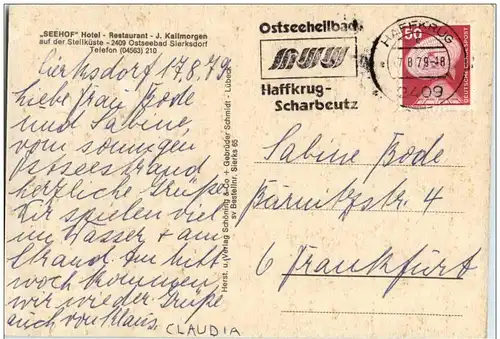 „SEEHOF" Hotel - Restaurant - J. Kallmorgen
auf der Steilküste - 2409 Ostseebad Sierksdorf
Telefon (04563) 210
Sierksdorf 17.8.79
Liebe Frau Bode
und Sabine,
vom sonnigen
Ostseestrand
herzliche Grüße.
Wir spielen viel
im Wasser + am
Strand. Am Mitt
woch kommen
wir wieder. Grüße
auch von Klaus.
CLAUDIA
Herst. u. Verlag Schöning & Co + Gebrüder Schmidt - Lübeck
sv Bestellnr. Sierks 65
Ostseeheilbad
Haffkrug-
Scharbeutz
HAFFKRUG
8.79-18
2409
50
DEUTSCHE BUNDESPOST
Sabine Bode
Bärnitzstr. 4
6 Frankfurt